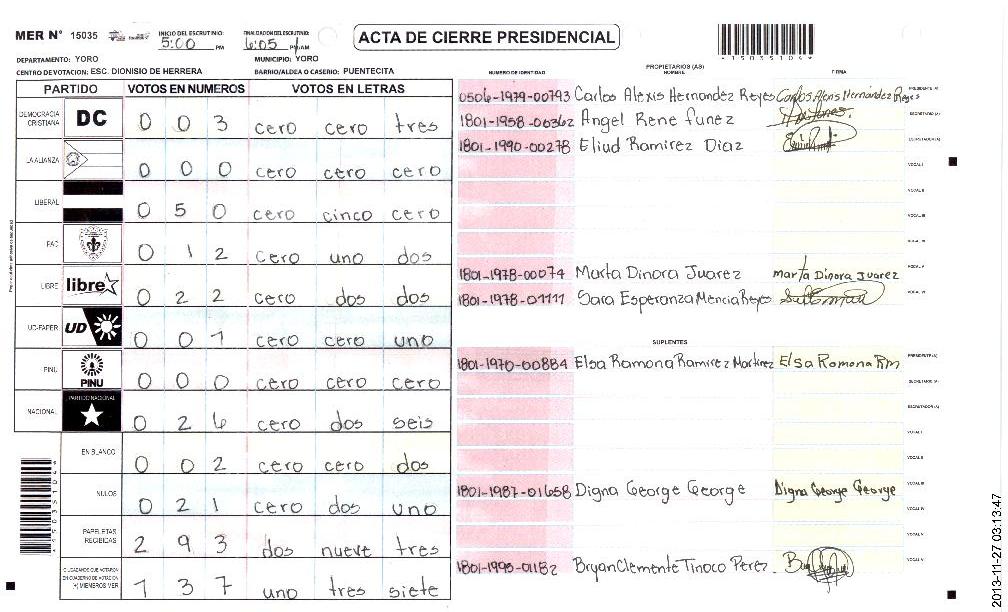 MER N° 15035
INICIO DEL ESCRUTINIO: 5:00 PM
FINALIZACION DEL ESCRUTINIO: 6:05 PM/AM
ACTA DE CIERRE PRESIDENCIAL
*15035104*
DEPARTAMENTO: YORO
MUNICIPIO: YORO
CENTRO DE VOTACION: ESC. DIONISIO DE HERRERA
BARRIO/ALDEA O CASERIO: PUENTECITA
PARTIDO VOTOS EN NUMEROS VOTOS EN LETRAS
DEMOCRACIA CRISTIANA DC 0 0 3 cero cero tres
LA ALIANZA 0 0 0 cero cero cero
LIBERAL 0 5 0 cero cinco cero
PAC 0 1 2 cero uno dos
LIBRE libre 0 2 2 cero dos dos
UD-FAPER UD 0 0 1 cero cero uno
PINU PINU 0 0 0 cero cero cero
NACIONAL PARTIDO NACIONAL 0 2 6 cero dos seis
EN BLANCO 0 0 2 cero cero dos
NULOS 0 2 1 cero dos uno
PAPELETAS RECIBIDAS 2 9 3 dos nueve tres
CIUDADANOS QUE VOTARON EN CUADERNO DE VOTACION (+) MIEMBROS MER 1 3 7 uno tres siete
PROPIETARIOS (AS)
NUMERO DE IDENTIDAD NOMBRE FIRMA
0506-1979-00793 Carlos Alexis Hernandez Reyes Carlos Alexis Hernández Reyes PRESIDENTE (A)
1801-1958-00362 Angel Rene funez SECRETARIO (A)
1801-1990-00278 Eliud Ramirez Diaz ESCRUTADOR (A)
VOCAL I
VOCAL II
VOCAL III
VOCAL IV
1801-1978-00074 Marta Dinora Juarez Marta Dinora Juarez VOCAL V
1801-1978-01111 Sara Esperanza Mencia Reyes VOCAL VI
SUPLENTES
1801-1970-00884 Elsa Ramona Ramirez Martinez Elsa Ramona RM PRESIDENTE (A)
SECRETARIO (A)
ESCRUTADOR (A)
VOCAL I
VOCAL II
1801-1987-01658 Digna George George Digna George George VOCAL III
VOCAL IV
VOCAL V
1801-1995-01182 Bryan Clemente Tinoco Perez VOCAL VI
*15035104*
2013-11-27 03:13:47